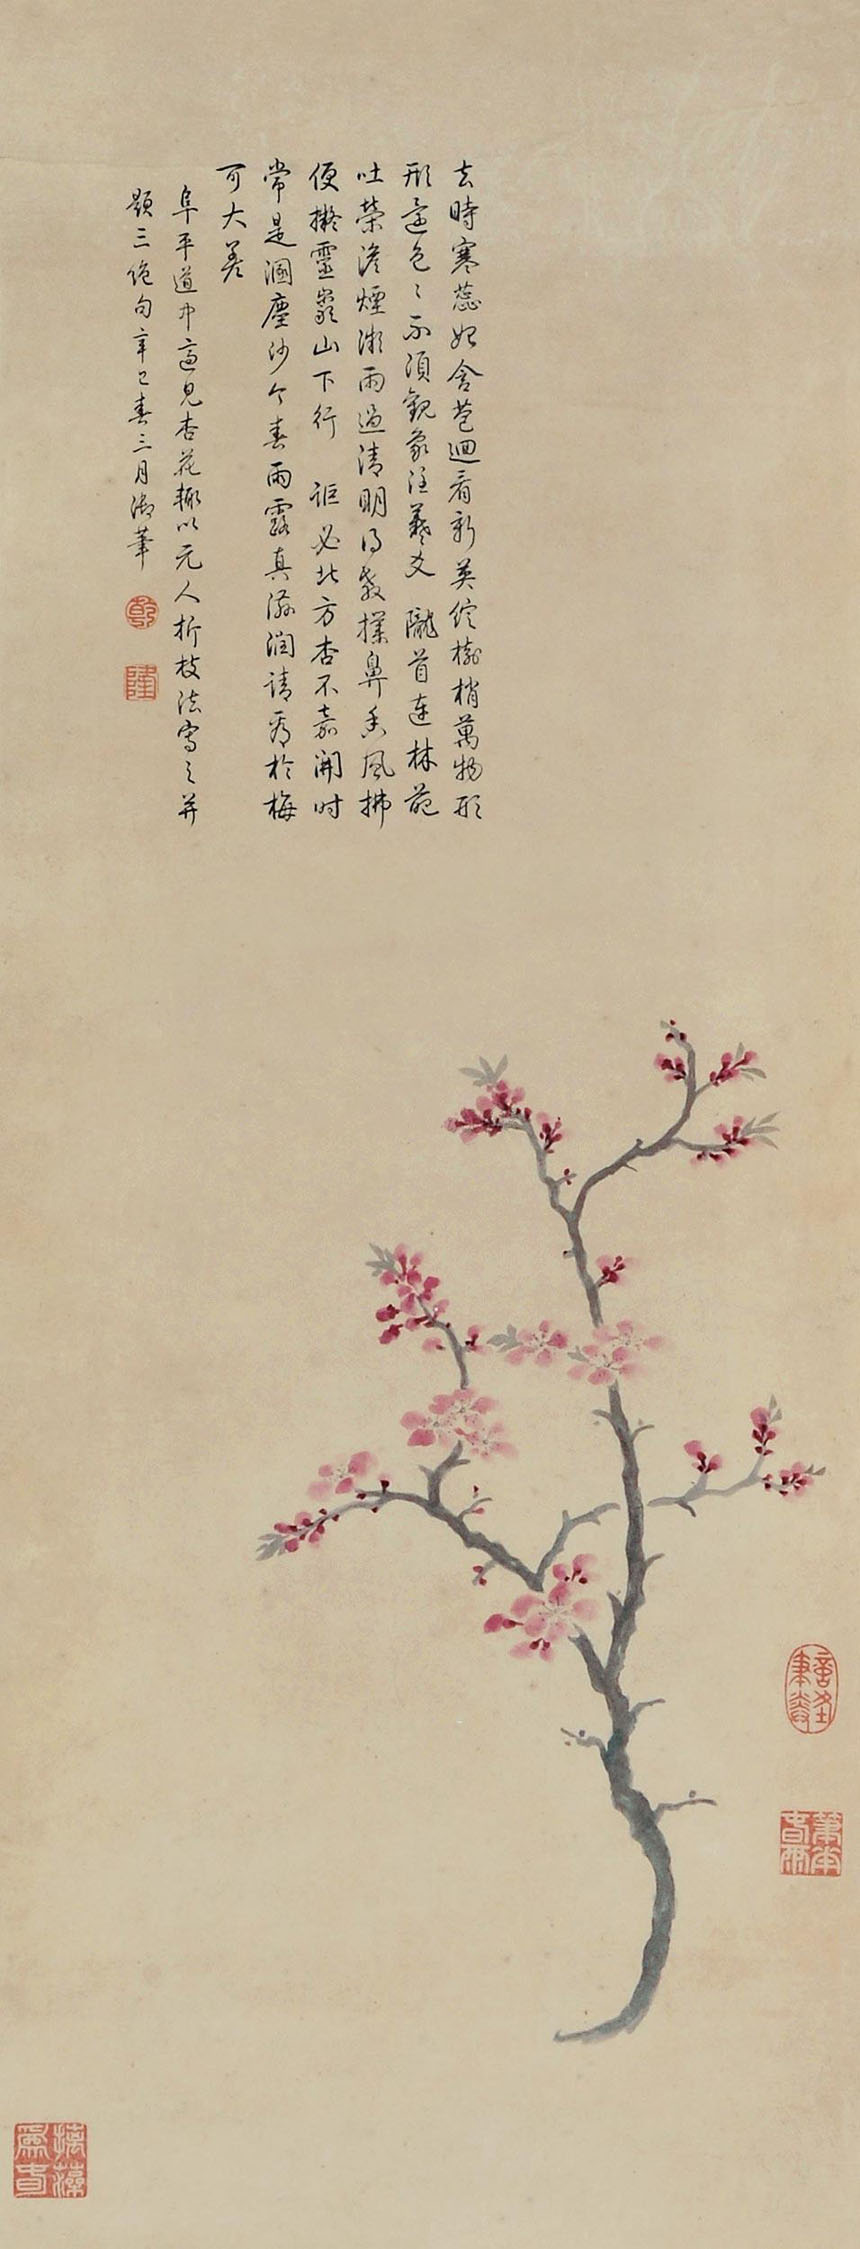 去時寒蕊始含苞迴看新英綻樹梢萬物形
形還色〻不須觀象注羲爻 隴首連林葩
吐榮澹煙微雨過清明得教撲鼻香風拂
便擬靈巖山下行 詎必北方杏不嘉開時
常是涸塵沙今春雨露真滋潤請看於梅
可大差
阜平道中喜見杏花輒以元人折枝法寫之并
題三絶句辛巳春三月御筆
乾
隆
摛藻
為春